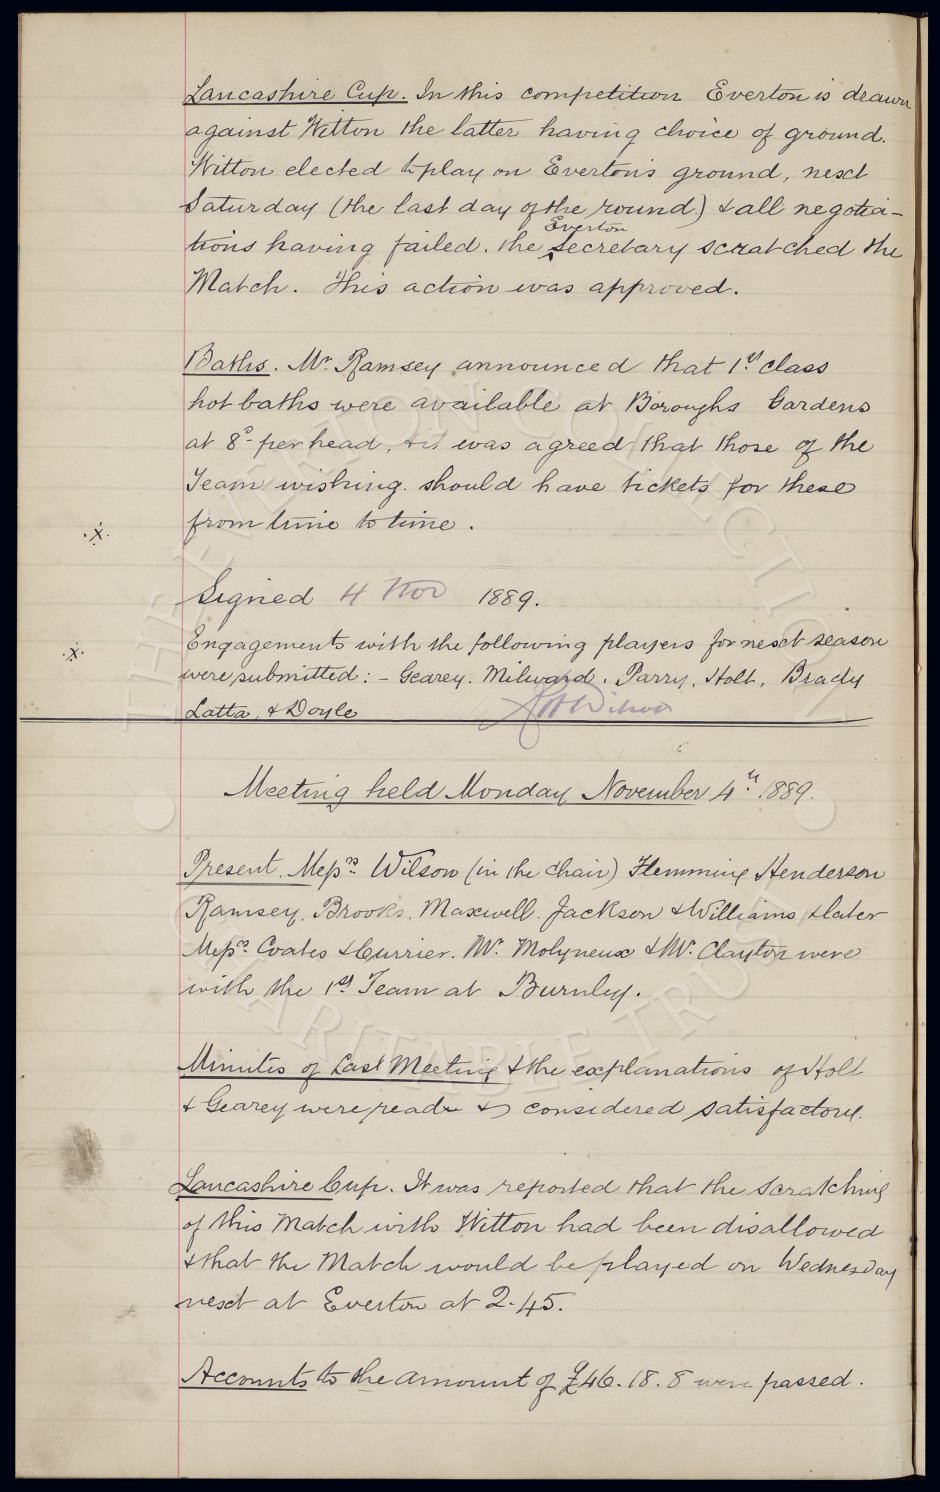 Lancashire Cup. In this competition Everton is drawn
against Witton the latter having choice of ground.
Witton elected to play on Everton's ground, next
Saturday (the last day of the round) & all negotia-
tions having failed, the Everton Secretary scratched the
Match. This action was approved.
Baths. Mr. Ramsey announced that 1st class
hot baths were available at Boroughs Gardens
at 8d per head, & it was agreed that those of the
Team wishing should have tickets for these
from time to time.
.x.
Signed 4 Nov 1889.
Engagements with the following players for next season
.x.
were submitted:- Gearey. Milward. Parry, Holt, Brady
Latta, & Doyle
Meeting held Monday November 4th 1889.
Present. Messrs Wilson (in the chair) Flemming Henderson
Ramsey, Brooks, Maxwell. Jackson & Williams & later
Messrs Coates & Currier. Mr. Molyneux & Mr. Clayton were
with the 1st Team at Burnley.
Minutes of Last Meeting & the explanations of Holt
& Gearey were read & considered satisfactory.
Lancashire Cup. It was reported that the scratching
of this Match with Witton had been disallowed
& that the Match would be played on Wednesday
next at Everton at 2.45.
Accounts to the amount of £46.18.8 were passed.
THE EVERTON COLLECTION
CHARITABLE TRUST